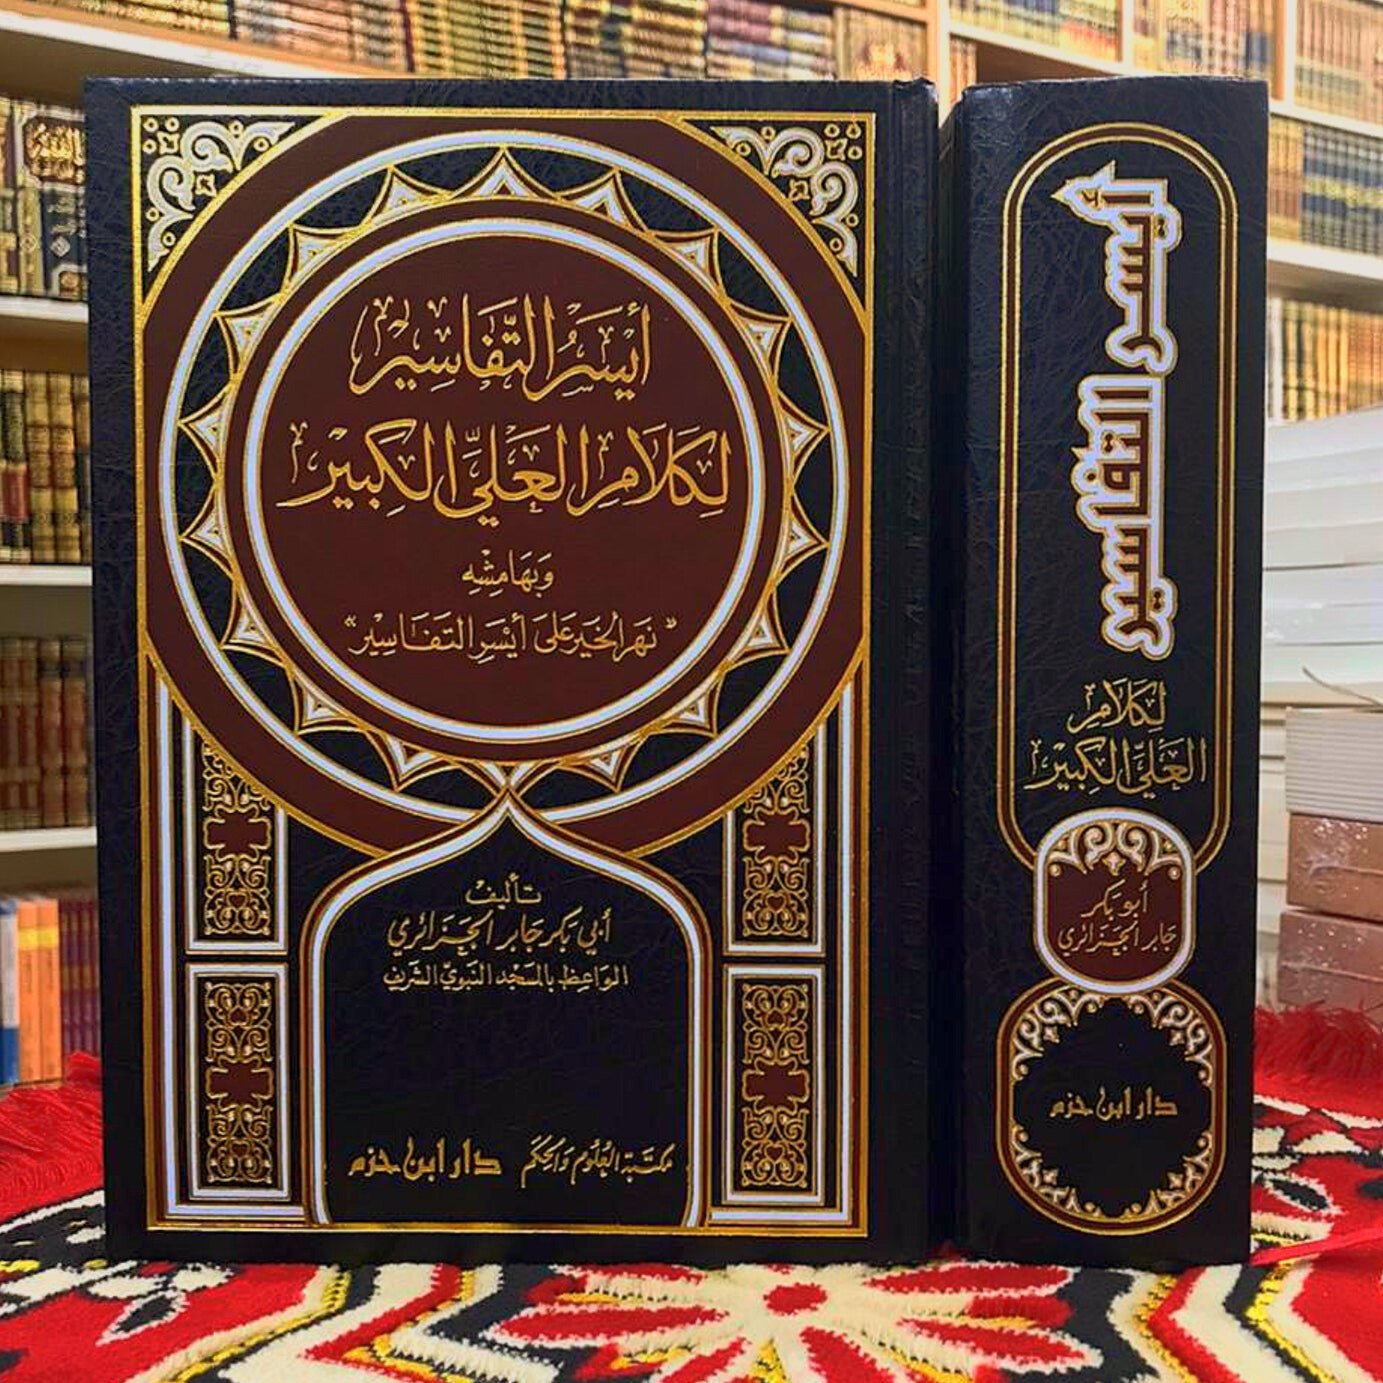 أَيْسَرُ التَّفَاسِيرِ
لِكَلَامِ العَلِيِّ الكَبِيْرِ
وَبِهَامِشِهِ
«نَهَرُ الخَيْرِ عَلَى أَيْسَرِ التَّفَاسِيْرِ»
تأليف
أبي بكر جابر الجَزَائري
الواعظ بالمسجد النبوي الشريف
مكتبة العُلوُم وَالحِكَم
دار ابن حزم
أيسر التفاسير
لِكَلَامِ
العَلِيِّ الكَبِيْرِ
أبو بكر
جابر الجَزَائري
دار ابن حزم